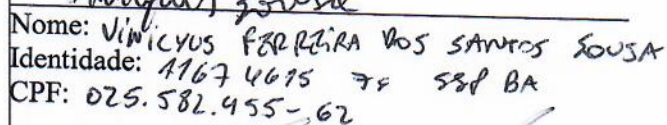 Nome: VINICYUS FERREIRA DOS SANTOS SOUSA
Identidade: 11674615 78 SSP BA
CPF: 025.582.455-62